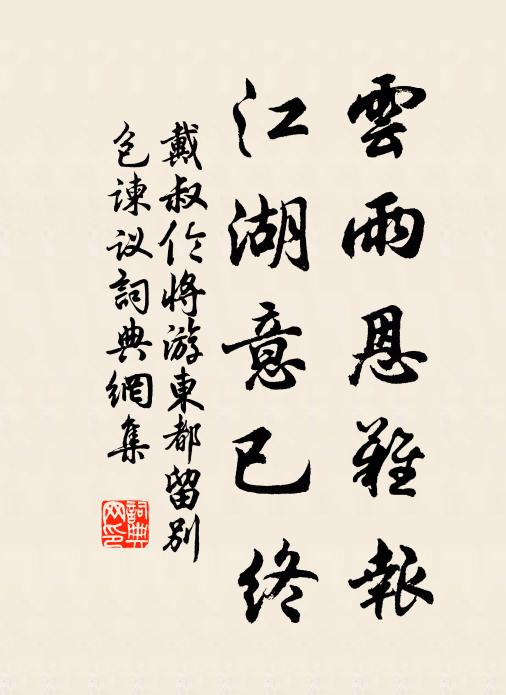 雲雨恩難報
江湖意已終
戴叔伦将游東都留别
包谏议詞典網集
詞典
网印